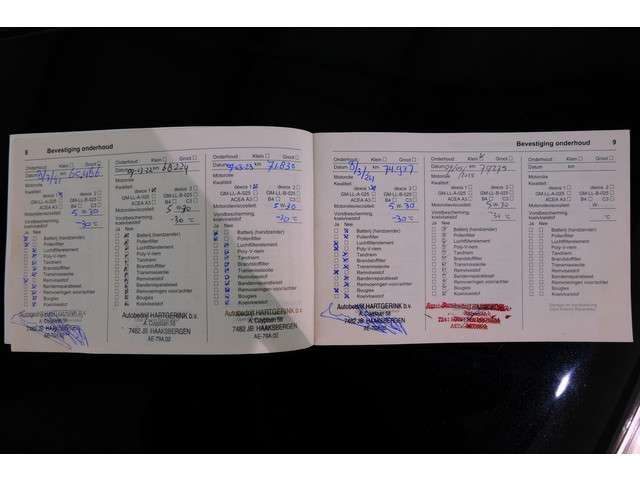 8 Bevestiging onderhoud
Onderhoud: Klein Groot
Datum km 65,466
Motorolie
Kwaliteit
dexos 1 dexos 2
GM-LL-A-025 GM-LL-B-025
ACEA A3 B4 C3
Motorolieviscositeit 5 - 30
Vorstbescherming,
koelvloeistof -30 °C
Ja Nee
Batterij (handzender)
Pollenfilter
Luchtfilterelement
Poly-V-riem
Tandriem
Brandstoffilter
Transmissieolie
Remvloeistof
Bandenreparatieset
Remvoeringen voor/achter
Bougies
Koelvloeistof
Autobedrijf HARTGERINK b.v.
7482 JB HAAKSBERGEN
AE-79A.02
Onderhoud: Klein Groot
Datum km 68224
Motorolie
Kwaliteit
dexos 1 dexos 2
GM-LL-A-025 GM-LL-B-025
ACEA A3 B4 C3
Motorolieviscositeit 5 - 30
Vorstbescherming,
koelvloeistof -30 °C
Ja Nee
Batterij (handzender)
Pollenfilter
Luchtfilterelement
Poly-V-riem
Tandriem
Brandstoffilter
Transmissieolie
Remvloeistof
Bandenreparatieset
Remvoeringen voor/achter
Bougies
Koelvloeistof
Autobedrijf HARTGERINK b.v.
7482 JB HAAKSBERGEN
AE-79A.02
Onderhoud: Klein Groot
Datum km 71830
Motorolie
Kwaliteit
dexos 1 dexos 2
GM-LL-A-025 GM-LL-B-025
ACEA A3 B4 C3
Motorolieviscositeit 5 - 30
Vorstbescherming,
koelvloeistof -30 °C
Ja Nee
Batterij (handzender)
Pollenfilter
Luchtfilterelement
Poly-V-riem
Tandriem
Brandstoffilter
Transmissieolie
Remvloeistof
Bandenreparatieset
Remvoeringen voor/achter
Bougies
Koelvloeistof
Autobedrijf HARTGERINK b.v.
7482 JB HAAKSBERGEN
AE-79A.02
Bevestiging onderhoud 9
Onderhoud: Klein Groot
Datum km 74.977
Motorolie
Kwaliteit
dexos 1 dexos 2
GM-LL-A-025 GM-LL-B-025
ACEA A3 B4 C3
Motorolieviscositeit 5 - 30
Vorstbescherming,
koelvloeistof -30 °C
Ja Nee
Batterij (handzender)
Pollenfilter
Luchtfilterelement
Poly-V-riem
Tandriem
Brandstoffilter
Transmissieolie
Remvloeistof
Bandenreparatieset
Remvoeringen voor/achter
Bougies
Koelvloeistof
Autobedrijf HARTGERINK b.v.
7482 JB HAAKSBERGEN
AE-79A.02
Onderhoud: Klein Groot
Datum km
Motorolie
Kwaliteit
dexos 1 dexos 2
GM-LL-A-025 GM-LL-B-025
ACEA A3 B4 C3
Motorolieviscositeit
Vorstbescherming,
koelvloeistof °C
Ja Nee
Batterij (handzender)
Pollenfilter
Luchtfilterelement
Poly-V-riem
Tandriem
Brandstoffilter
Transmissieolie
Remvloeistof
Bandenreparatieset
Remvoeringen voor/achter
Bougies
Koelvloeistof
Onderhoud: Klein Groot
Datum km
Motorolie
Kwaliteit
dexos 1 dexos 2
GM-LL-A-025 GM-LL-B-025
ACEA A3 B4 C3
Motorolieviscositeit W
Vorstbescherming,
koelvloeistof °C
Ja Nee
Batterij (handzender)
Pollenfilter
Luchtfilterelement
Poly-V-riem
Tandriem
Brandstoffilter
Transmissieolie
Remvloeistof
Bandenreparatieset
Remvoeringen voor/achter
Bougies
Koelvloeistof